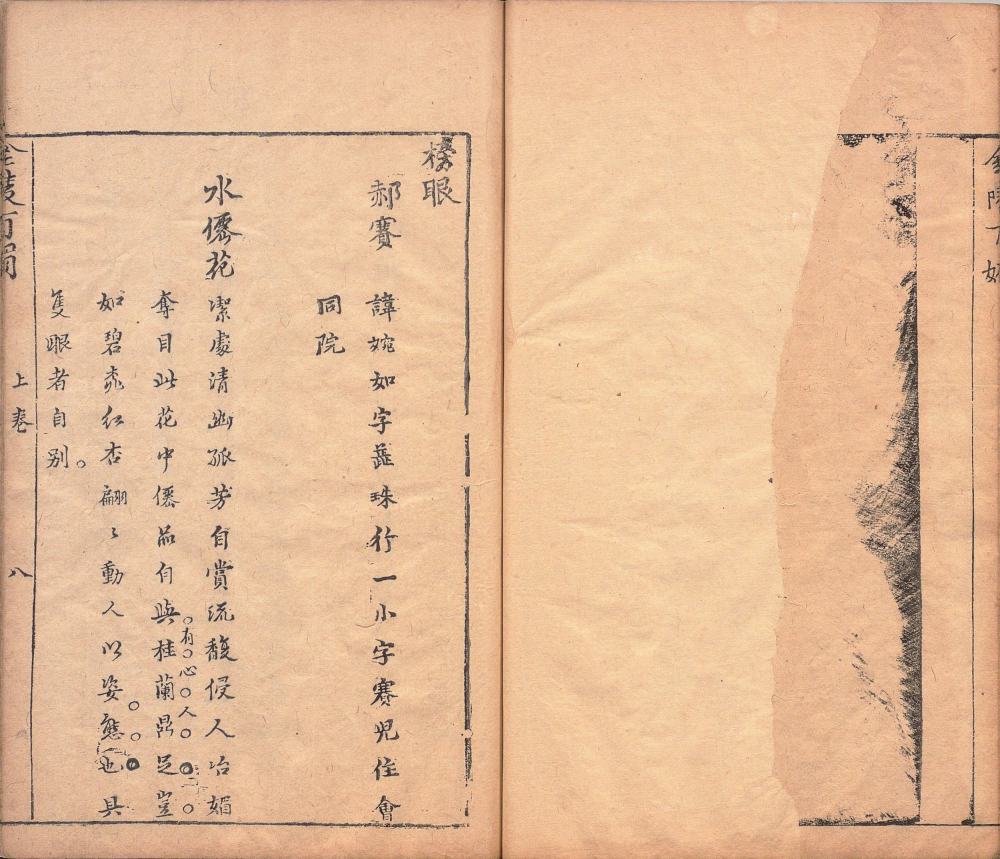 榜眼
郝賽
諱婉如字蕋珠行一小字賽児住會
同院
水僊花
潔處清幽孤芳自賞流馥侵人冶媚
有心人
奪目此花中僊品自與桂蘭鼎足豈
如碧桃紅杏翩〻動人以姿態也具
隻眼者自别
上卷
八